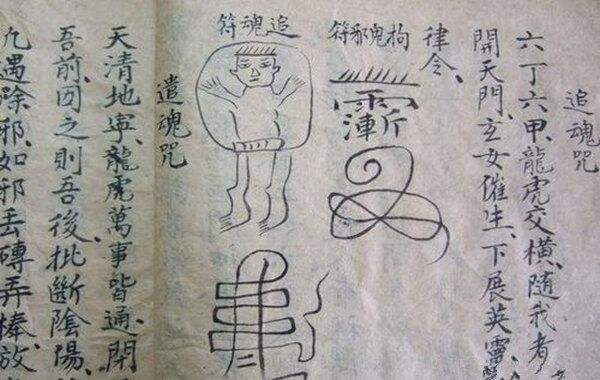 追魂咒
六丁六甲、龍虎交橫、隨我者
開天門、玄女催生、下展英靈
律令、
拘鬼邪符
追魂符
遣魂咒
天清地寧、龍虎萬事皆通、開
吾前、囙之則吾後、批斷陰陽、
凡遇除邪、如邪丟磚弄棒、放